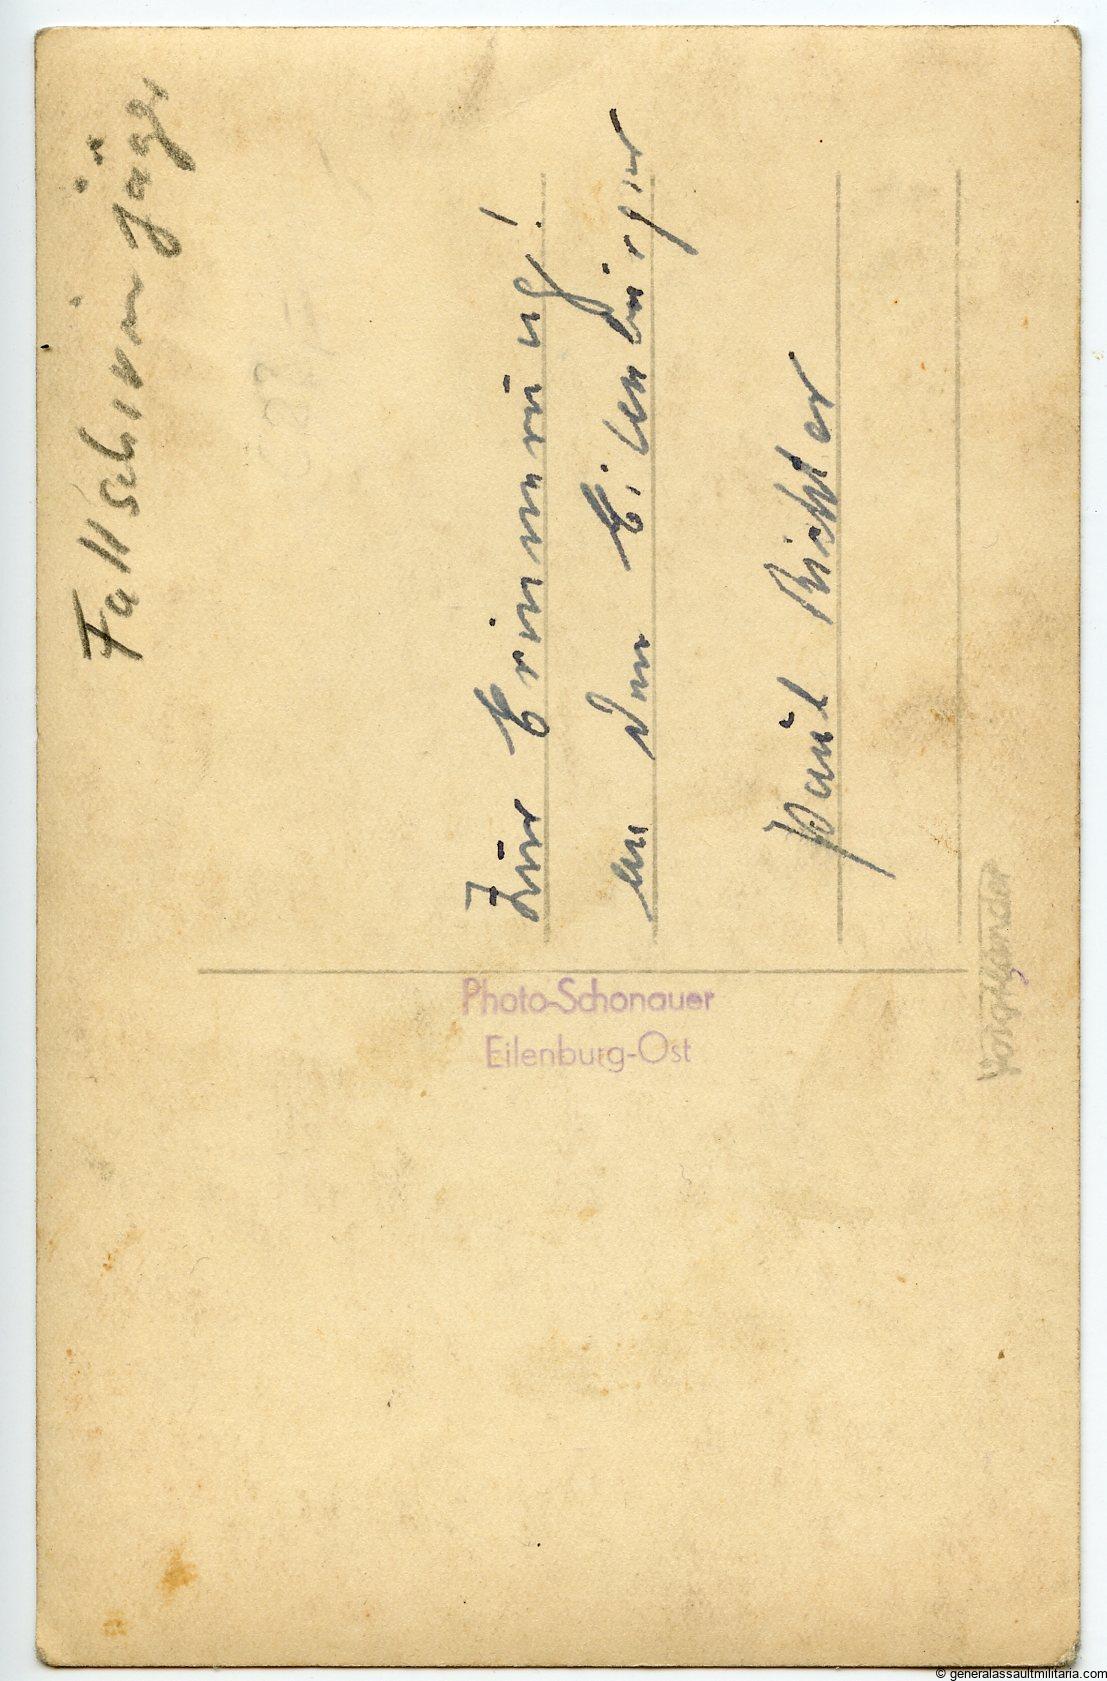 Fallschirmjäger
Zur Erinnerung!
an den Eilenburger
Paul Richter
Photo-Schönauer
Eilenburg-Ost
Voigtländer
© generalassaultmilitaria.com